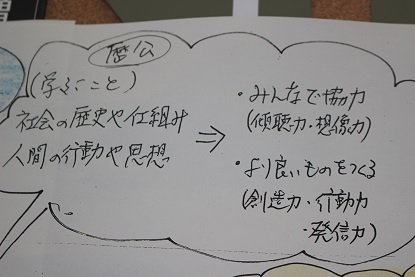 暦公
(学ぶこと)
社会の歴史や仕組み
人間の行動や思想
⇒
・みんなで協力
(傾聴力・想像力)
・より良いものをつくる
(創造力・行動力
・発信力)